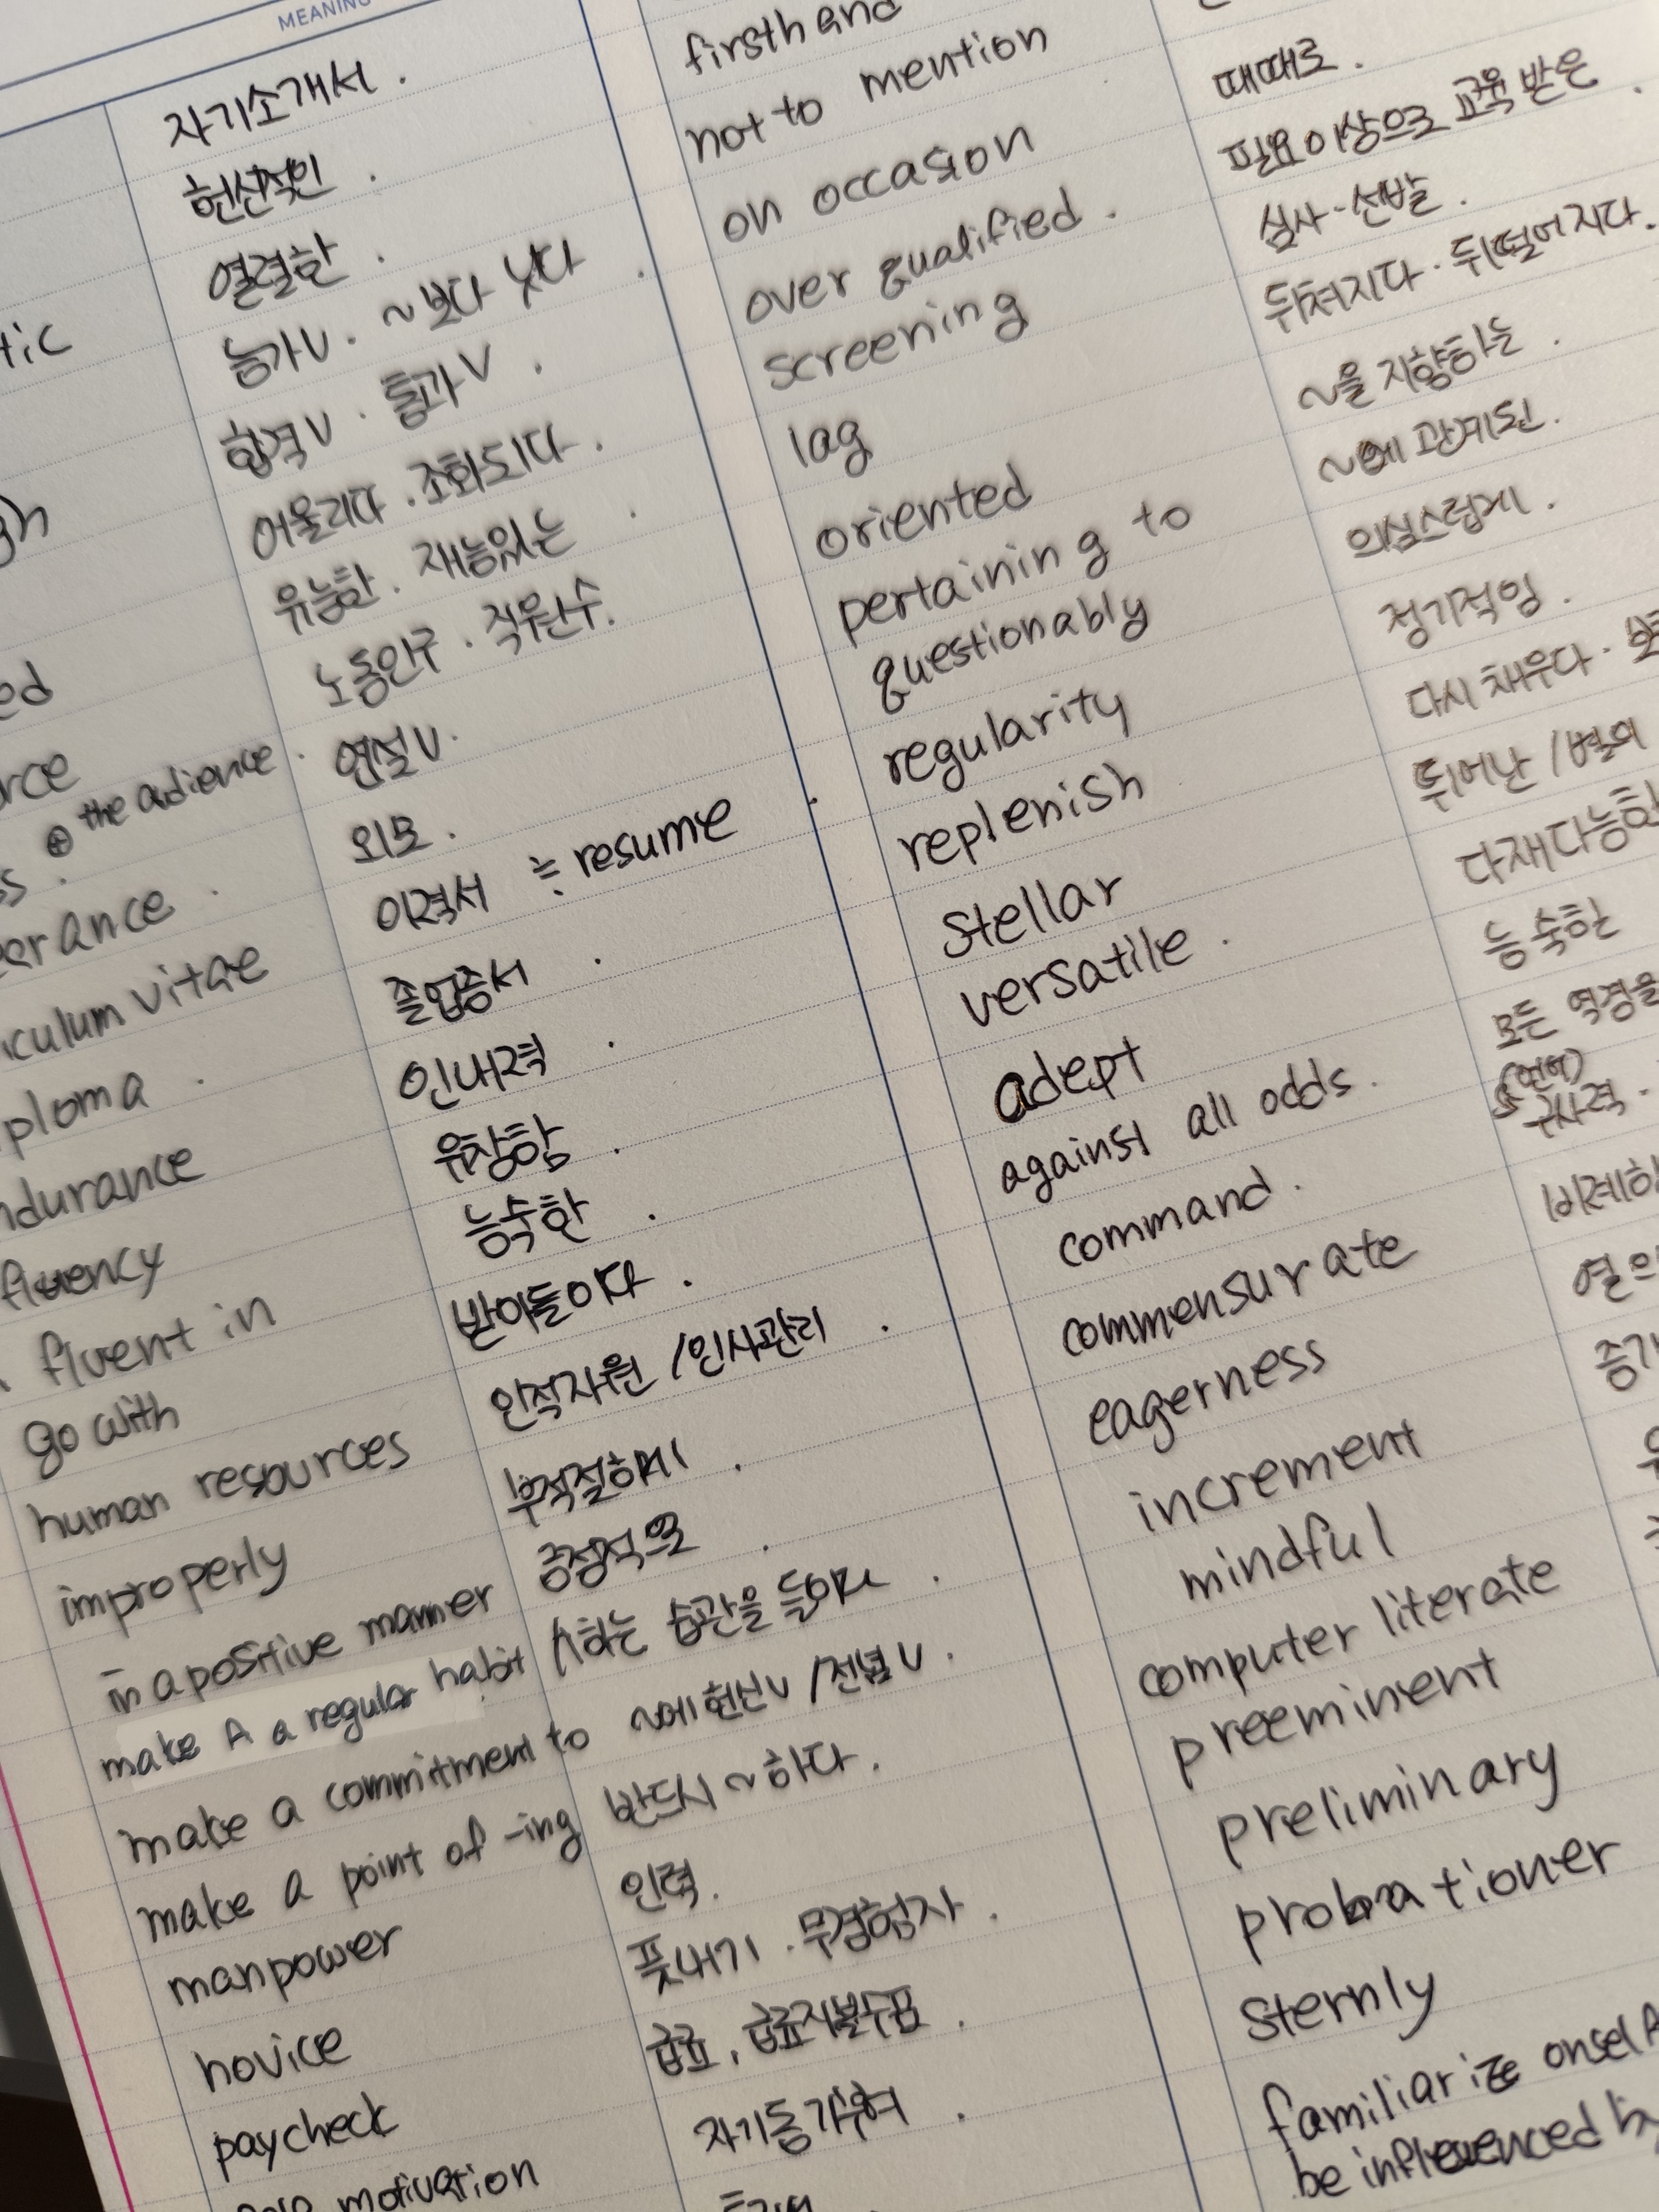 MEANING
자기소개서.
헌신적인.
열렬한.
tic 능가V. ~보다 낫다.
합격V. 통과V.
어울리다. 조화되다.
유능한. 재능있는.
ed 노동인구. 직원수.
⊕ the audience. 연설V.
외모.
이력서 ≒ resume.
vitae
졸업증서.
인내력.
fluency 유창함.
fluent in 능숙한.
go with 받아들이다.
human resources 인적자원 / 인사관리.
improperly 부적절하게.
in a positive manner 긍정적으로.
make A a regular habit A하는 습관을 들이다.
make a commitment to ~에 헌신V / 전념V.
make a point of -ing 반드시 ~하다.
manpower 인력.
novice 풋내기. 무경험자.
paycheck 급료, 급료지불수표.
motivation 자기동기부여.
firsthand
not to mention
on occasion 때때로.
over qualified. 필요이상으로 교육 받은.
screening 심사·선발.
lag 뒤쳐지다·뒤떨어지다.
oriented ~을 지향하는.
pertaining to ~에 관계된.
questionably 의심스럽게.
regularity 정기적임.
replenish 다시 채우다.
stellar 뛰어난 / 별의
versatile. 다재다능한
adept 능숙한
against all odds. 모든 역경을
command. (언어) 구사력.
commensurate
eagerness
increment
mindful
computer literate
preeminent
preliminary
probationer
sternly
familiarize
be influenced by